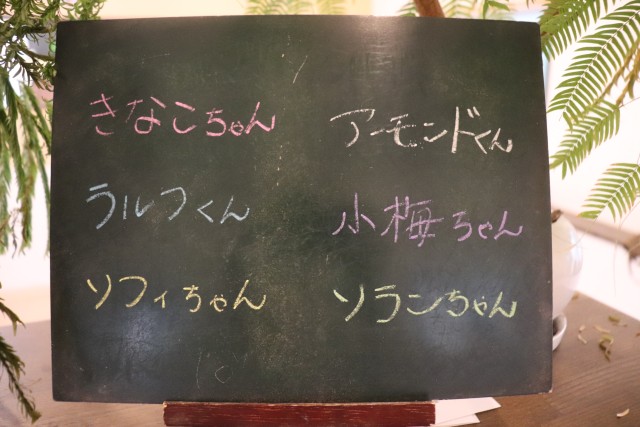 きなこちゃん
ラルフくん
ソフィちゃん
アーモンドくん
小梅ちゃん
ソランちゃん